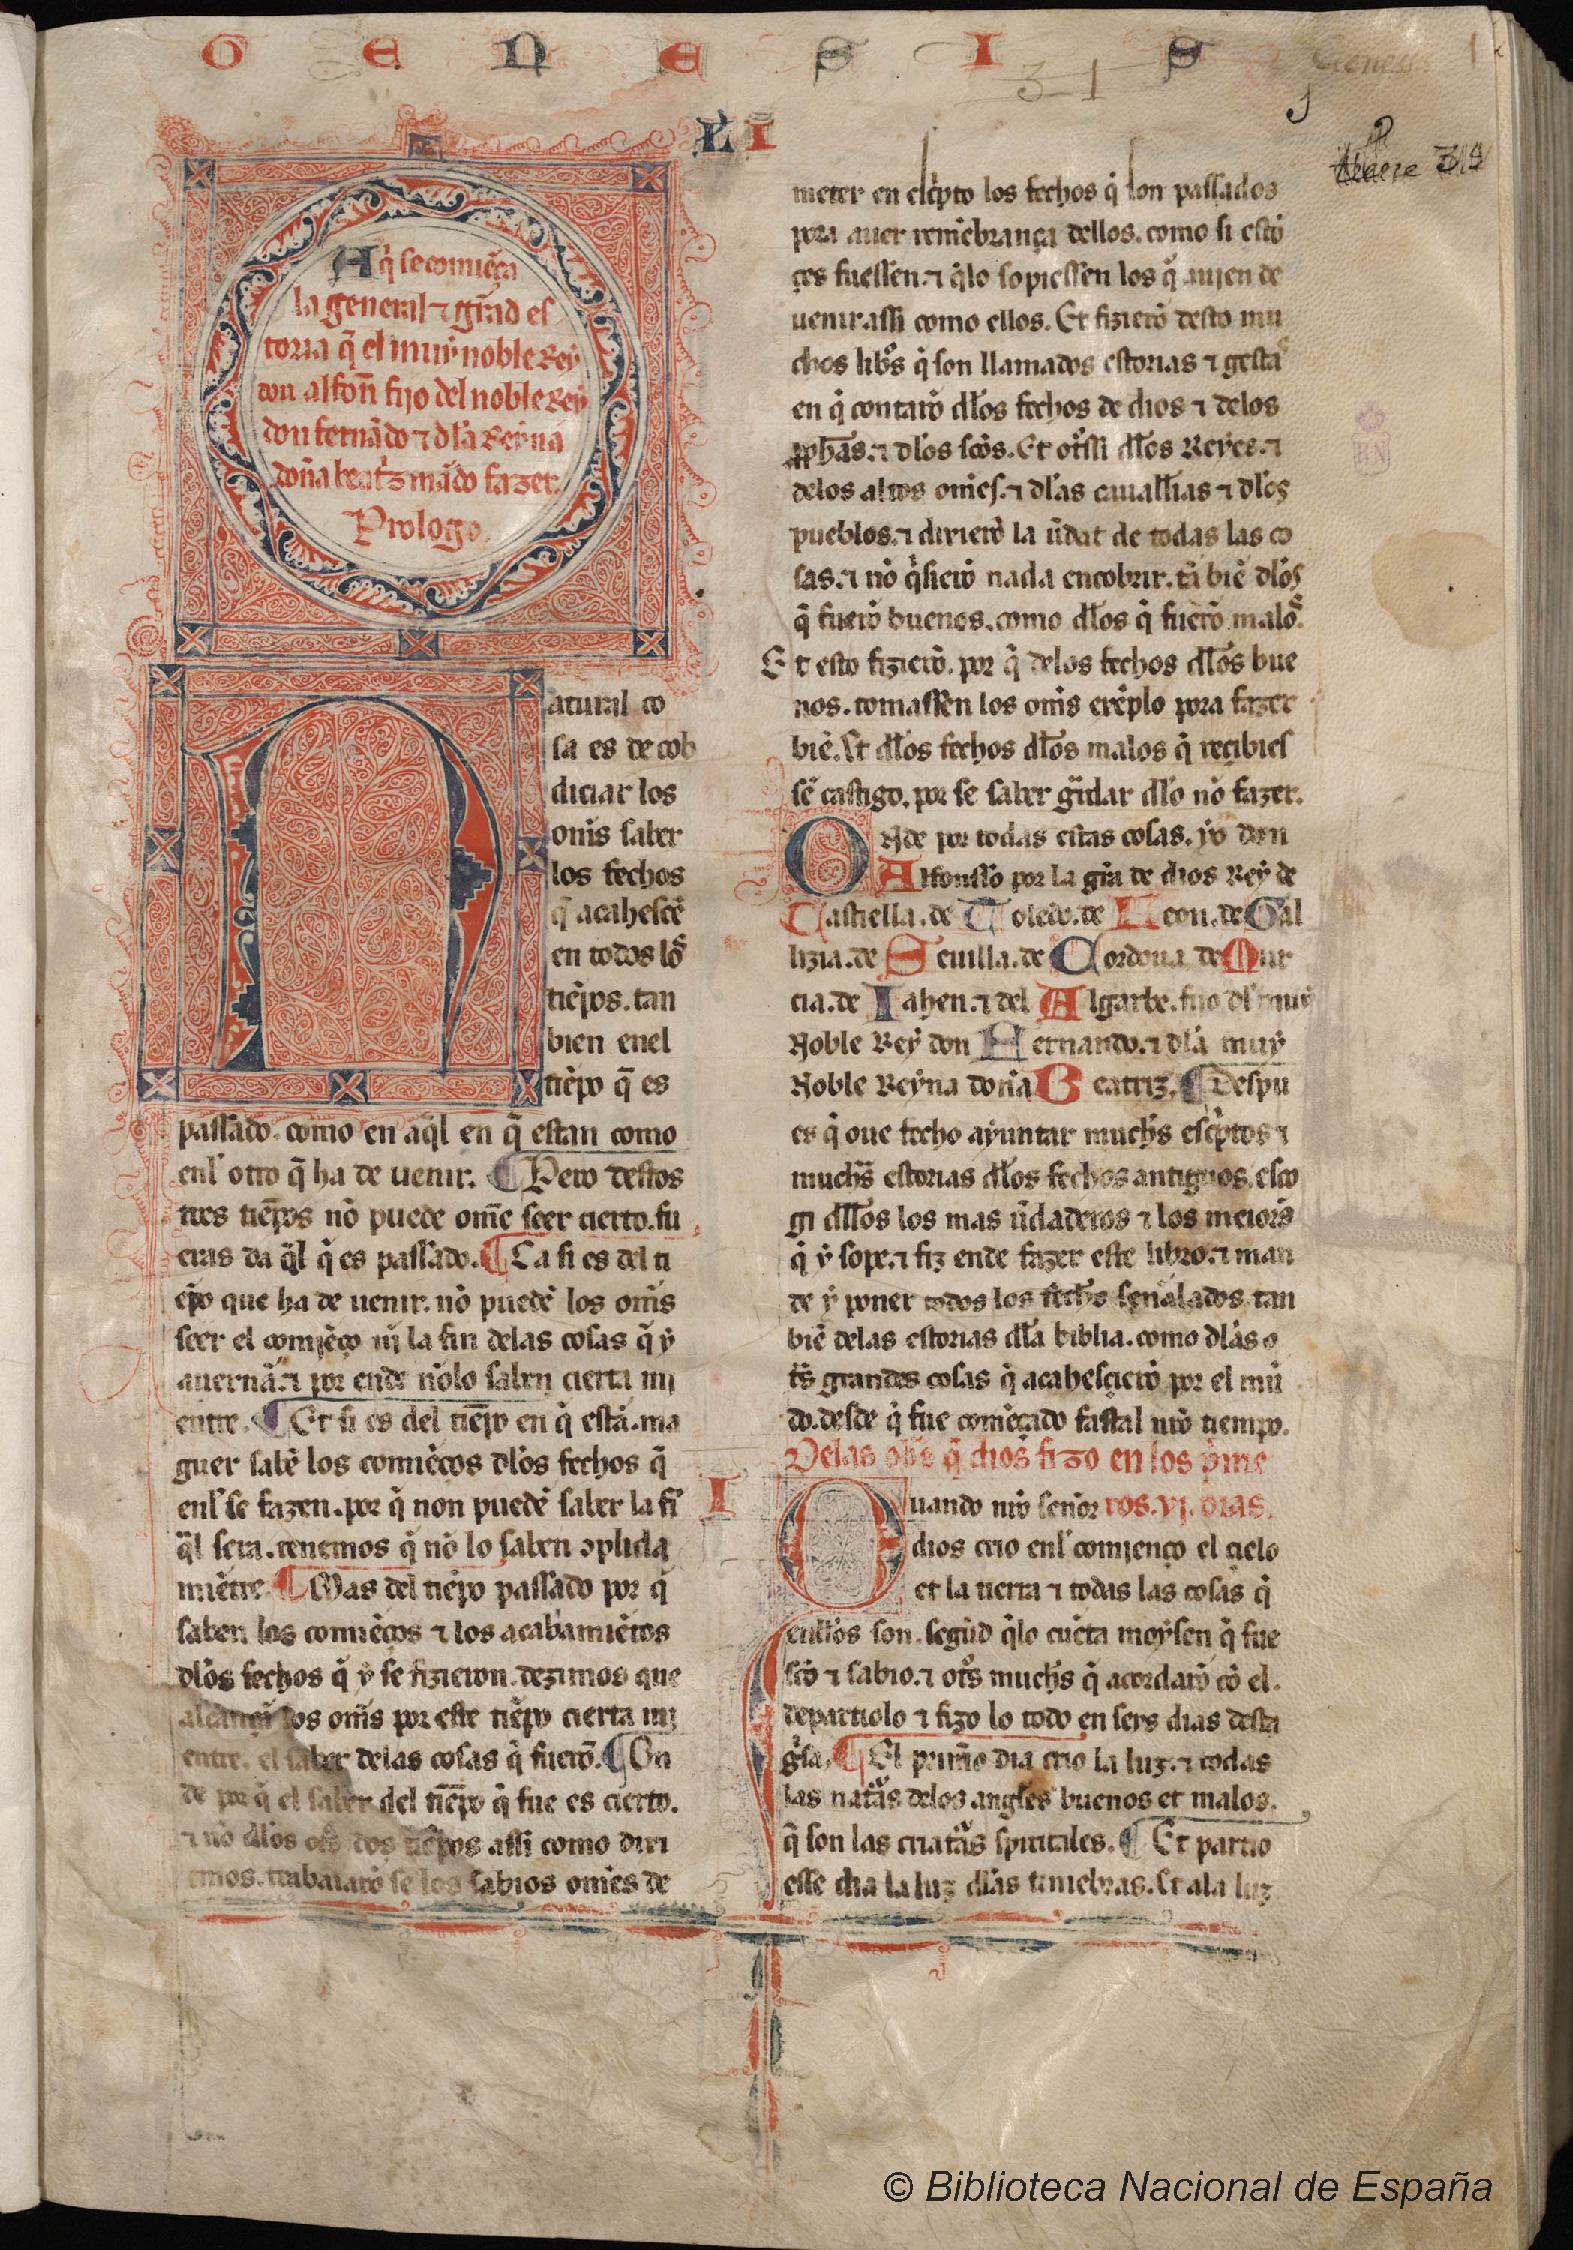 G E N E S I S
LI
Aq̃ se comiẽça
la general ⁊ grãd es
toria q̃ el muy noble Rey
don alfon̄ fijo del noble Rey
don fernãdo ⁊ dl'a Reyna
doña beatͥz mãdo fazer.
Prologo.
Natural co
sa es de cob
diciar los
om̃s saber
los fechos
q̃ acahescẽ
en todos los
tiẽpos. tan
bien enel
tiẽpo q̃ es
passado. como en aq̃l en q̃ estan como
enl' otro q̃ ha de uenir. ¶ Pero destos
tres tiẽpos nõ puede om̃e seer cierto. fu
eras da q̃l q̃ es passado. ¶ Ca si es del ti
ẽpo que ha de uenir. nõ puedẽ los om̃s
seer el comiẽço nj̃ la fin delas cosas q̃ y
auernã. ⁊ por ende nõlo saben cierta mj
entre. ¶ Et si es del tiẽpo en q̃ estã. ma
guer sabẽ los comiẽços dl'os fechos q̃
enl' se fazen. por q̃ non puedẽ saber la fĩ
q̃l sera. tenemos q̃ nõ lo saben ↄplida
miẽtre. ¶ Mas del tiẽpo passado por q̃
saben los comiẽços ⁊ los acabamiẽtos
dl'os fechos q̃ y se fizieron. dezimos que
alcançã los om̃s por este tiẽpo cierta mj
entre. el saber delas cosas q̃ fuerõ. ¶ On
de por q̃ el saber del tiẽpo q̃ fue es cierto.
⁊ nõ dl'os otͦs dos tiẽpos assi como dixi
emos. trabaiarõ se los sabios om̃es de
meter en escͥpto los fechos q̃ son passados
pora auer remẽbrança dellos. como si estõ
ces fuessen. ⁊ q̃lo sopiessen los q̃ aujen de
uenir assi como ellos. Et fizierõ desto mu
chos libͦs q̃ son llamados estorias ⁊ gestas
en q̃ contarõ dl'os fechos de dios ⁊ delos
ꝓph̃as. ⁊ dl'os sc̃os. Et otͦssi dl'os Reyes. ⁊
delos altos om̃es. ⁊ dl'as cauall'ias ⁊ dl'os
pueblos. ⁊ dixierõ la ũdat de todas las co
sas. ⁊ nõ q̃sierõ nada encobrir. tã biẽ dl'os
q̃ fuerõ buenos. como dl'os q̃ fuerõ malos.
Et esto fizierõ. por q̃ delos fechos dl'os bue
nos. tomassen los om̃s exẽplo pora fazer
biẽ. Et dl'os fechos dl'os malos q̃ reçibies
sẽ castigo. por se saber gͣrdar dl'o nõ fazer.
Onde por todas estas cosas. yo don
Alfonsso por la gr̃a de dios Rey de
Castiella. de Toledo. de Leon. de Gal
lizia. de Seuilla. de Cordoua. de Mur
cia. de Iahen. ⁊ del Algarbe. fijo dl' muy
Noble Rey don Hernando. ⁊ dl'a muy
Noble Reyna doña Beatriz. ¶ Despu
es q̃ oue fecho ayuntar much̃s escͥptos ⁊
much̃s estorias dl'os fechos antiguos. esco
gi dl'los los mas ũdaderos ⁊ los meiors
q̃ y sope. ⁊ fiz ende fazer este libro. ⁊ man
de y poner todos los fech̃s señalados. tan
biẽ delas estorias dl'a biblia. como dl'as o
tͣs grandes cosas q̃ acahescierõ por el mũ
do. desde q̃ fue comẽçado fastal nr̃o tiempo.
Delas obͣs q̃ dios fizo en los pͥme
I
Quando nr̃o señor ros. vj. dias.
dios crio enl' comjenço el cielo
et la tierra ⁊ todas las cosas q̃
enell'os son. segũd q̃lo cuẽta moysen q̃ fue
sc̃o ⁊ sabio. ⁊ otͦs much̃s q̃ acordarõ cõ el.
departiolo ⁊ fizo lo todo en seys dias desta
gͥsa. ¶ El prim̃o dia crio la luz. ⁊ todas
las natͣs delos angl'es buenos et malos.
q̃ son las criatͣs spiritales. ¶ Et partio
esse dia la luz dl'as tiniebras. Et ala luz
© Biblioteca Nacional de España